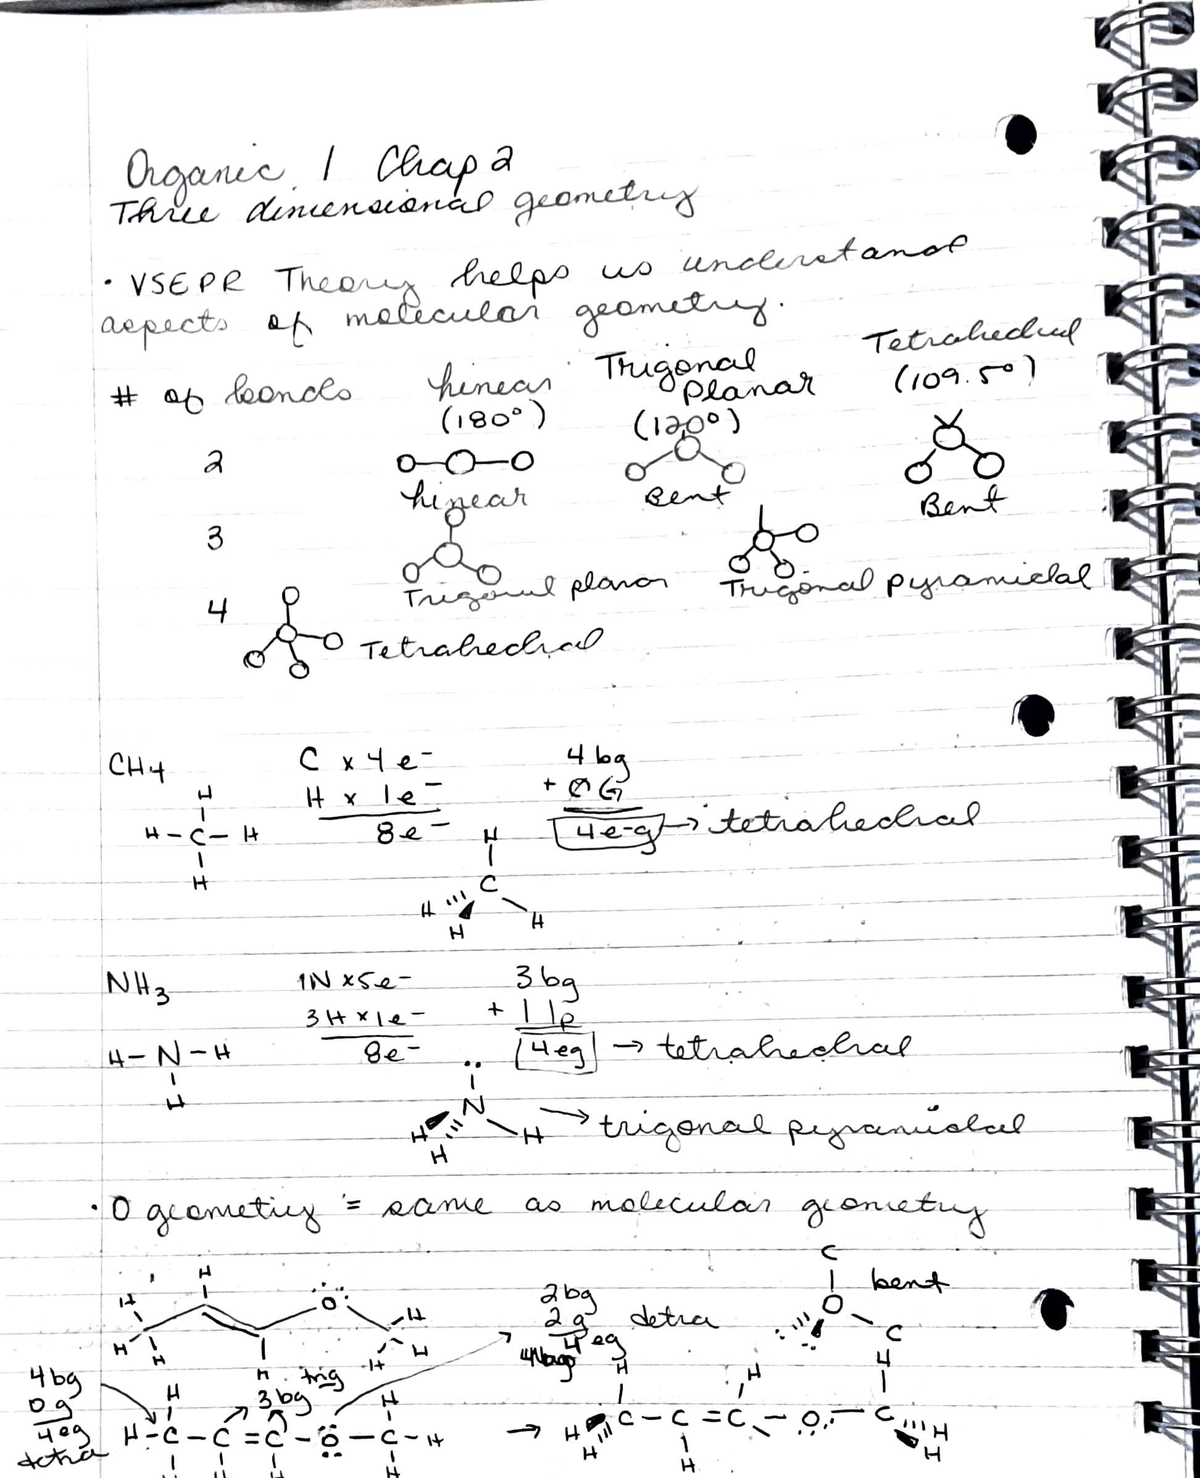 Organic 1 Chap 2
Three dimensional geometry
• VSEPR Theory helps us understand
aspects of molecular geometry.
# of bonds Linear (180°) Trigonal Planar (120°) Tetrahedral (109.5°)
2 Linear Bent Bent
3 Trigonal planar Trigonal pyramidal
4 Tetrahedral
CH4 C x 4 e- 4 bg
H x 1e- + ØG
8e- 4e-g → tetrahedral
H
H - C - H
H
H
C
H H
H
NH3 1N x5e- 3 bg
3H x1e- + 1 lp
8e- 4eg → tetrahedral
H - N - H
H
N
H H → trigonal pyramidal
H
• O geometry = same as molecular geometry
C
O bent
C
H
H O H
H H H H H
2bg
2 g detra
4 eg
trig
3 bg
4 bg
0 g
4eg
detra
H H
H - C - C = C - O - C - H
H
→
H H H
H C - C = C - O - C H
H H H